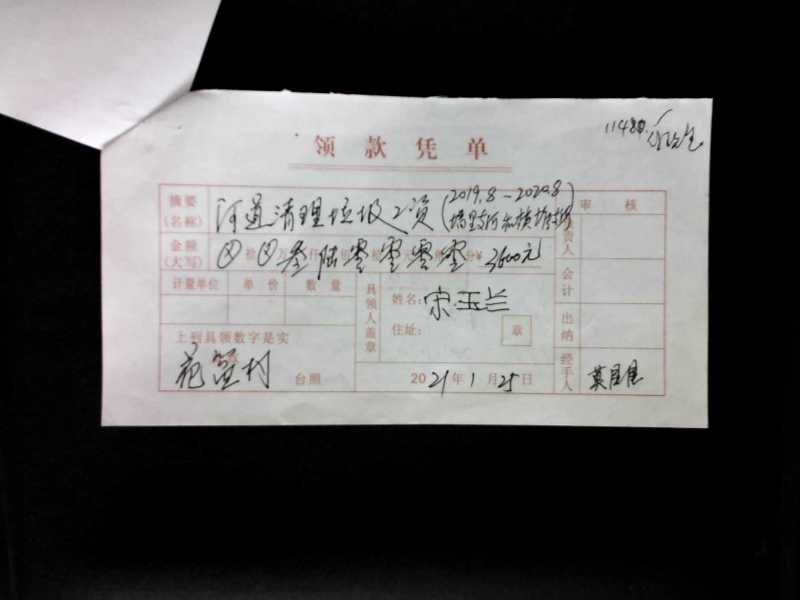 11480
领款凭单
摘要(名称) 河道清理垃圾工资 (2019.8-2020.8)
审核
金额(大写) ⊗ ⊗ 叁陆零零零零 ¥ 3600元
负责人
计量单位 单价 数量
具领人盖章
姓名: 宋玉兰
会计
住址:
章
出纳
上列具领数字是实
村 台照
2021年1月25日
经手人